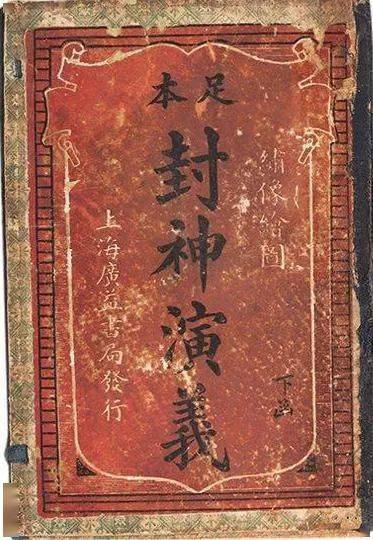 足本
繡像繪圖
封神演義
下函
上海廣益書局發行